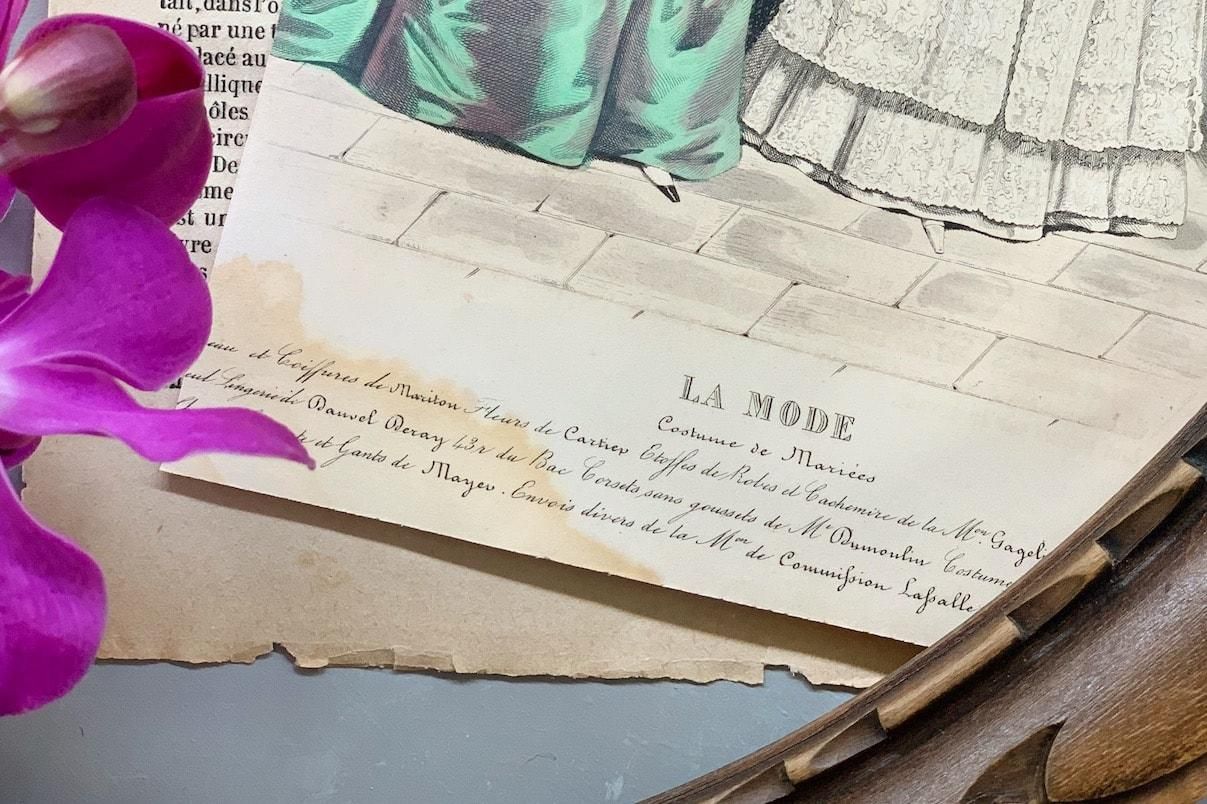 tait, dans l'o
né par une t
lacé au
llique
ôles
circu
De
me
st un
vre
s
LA MODE
Costume de Mariées
eau et Coiffures de Mariton Fleurs de Cartier Etoffes de Robes et Cachemire de la Mon. Gageli
eul Lingerie de Dauvel Deray 43r du Bac Corsets sans goussets de Me Dumoulin Costume
et Gants de Mayer. Envois divers de la Mon de Commission Lassalle